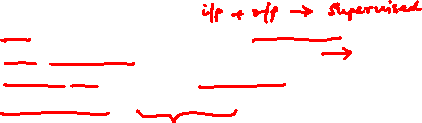 i/p + o/p → Supervised